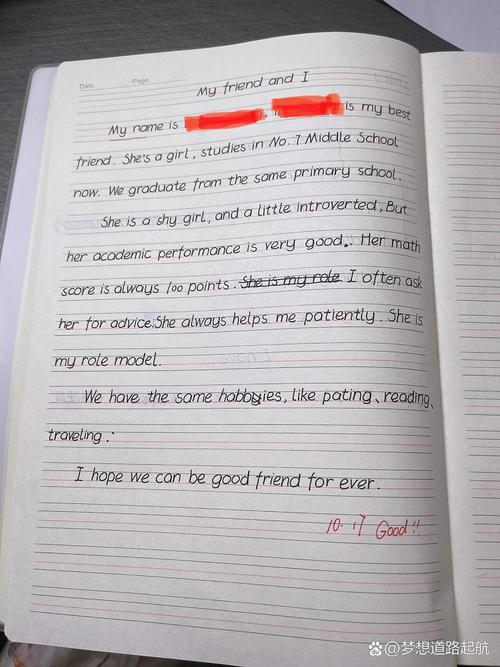 Date Page
My friend and I
My name is , is my best
friend. She's a girl, studies in No.7 Middle School
now. We graduate from the same primary school.
She is a shy girl, and a little introverted, But
her academic performance is very good. Her math
score is always 100 points. She is my role. I often ask
her for advice. She always helps me patiently. She is
my role model.
We have the same habbyies, like pating、reading、
traveling.
I hope we can be good friend for ever.
10.17 Good!!
Bai度@梦想道路起航